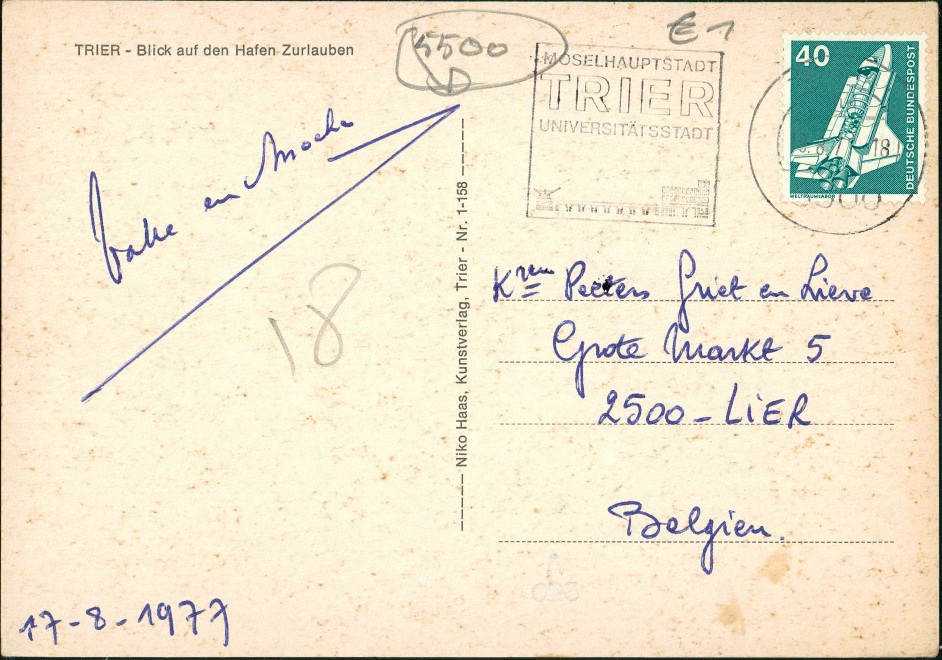 TRIER - Blick auf den Hafen Zurlauben
5500
D
€ 1
MOSELHAUPTSTADT
TRIER
UNIVERSITÄTSSTADT
40
DEUTSCHE BUNDESPOST
WELTRAUMLABOR
18
5500
en
18
17-8-1977
Niko Haas, Kunstverlag, Trier - Nr. 1-158
Kren Peeters Griet en Lieve
Grote Markt 5
2500 - LiER
Belgien.